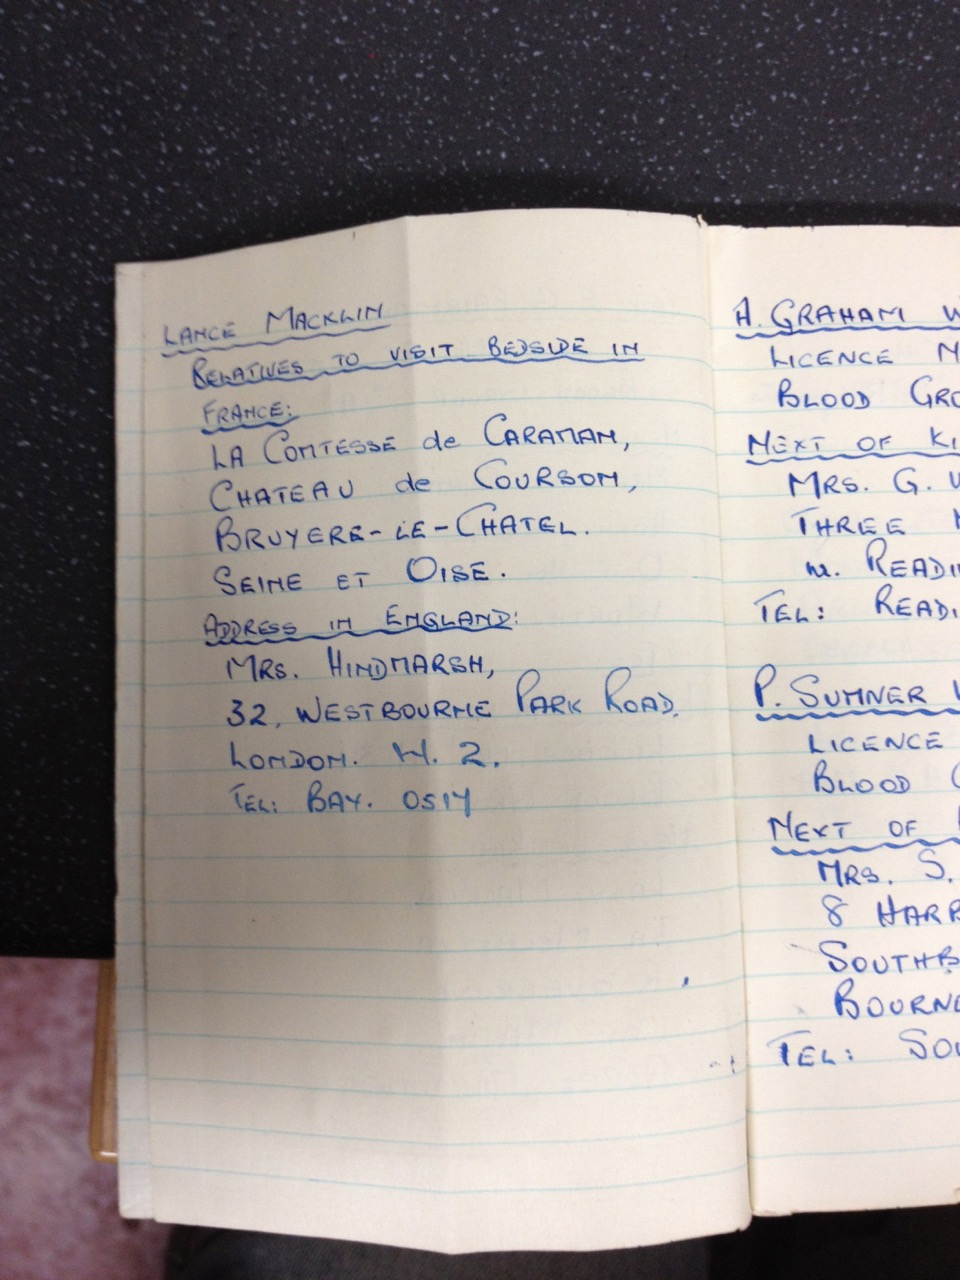 LANCE MACKLIN
RELATIVES TO VISIT BEDSIDE IN
FRANCE:
LA COMTESSE de CARAMAN,
CHATEAU de COURSON,
BRUYERE-LE-CHATEL.
SEINE ET OISE.
ADDRESS IN ENGLAND:
MRS. HINDMARSH,
32, WESTBOURNE PARK ROAD,
LONDON. W. 2.
TEL: BAY. 0514
A. GRAHAM W
LICENCE N
BLOOD GRO
NEXT OF KI
MRS. G. W
THREE
nr. READI
TEL: READI
P. SUMNER W
LICENCE
BLOOD G
NEXT OF
MRS. S.
8 HARB
SOUTHB
BOURNE
TEL: SOU